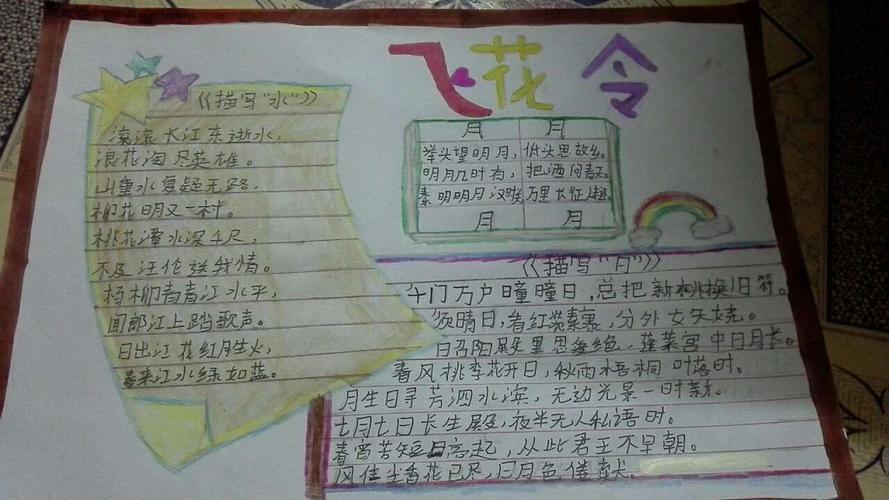 飞花令
《描写“水”》
滚流长江东逝水，
浪花淘尽英雄。
山重水复疑无路，
柳花明又一村。
桃花潭水深千尺，
不及汪伦送我情。
杨柳青青江水平，
闻郎江上踏歌声。
日出江花红胜火，
春来江水绿如蓝。
月 月
举头望明月，低头思故乡。
明月几时有，把酒问青天。
秦明明月汉时关，万里长征人
月 月
《描写“日”》
千门万户曈曈日，总把新桃换旧符。
须晴日，看红装素裹，分外妖娆。
昭阳殿里恩 绝，蓬莱宫中日月长。
春风桃李花开日，秋雨梧桐叶落时。
月生日寻芳泗水滨，无边光景一时新。
七月七日长生殿，夜半无人私语时。
春宵苦短日高起，从此君王不早朝。
风住尘香花已尽，日月色倦